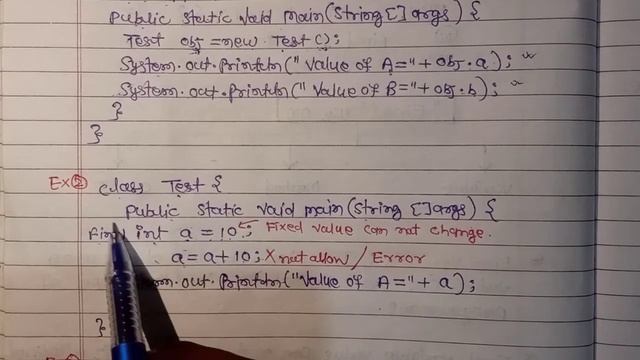 public static void main(String [] args) {
Test obj = new Test();
System.out.println(" Value of A="+ obj.a);
System.out.println(" Value of B="+ obj.b);
}
}
Ex② class Test {
public static void main(String [] args) {
int a = 10; ← Fixed value can not change.
a = a + 10; X not allow / Error
out.println("Value of A="+ a);
}